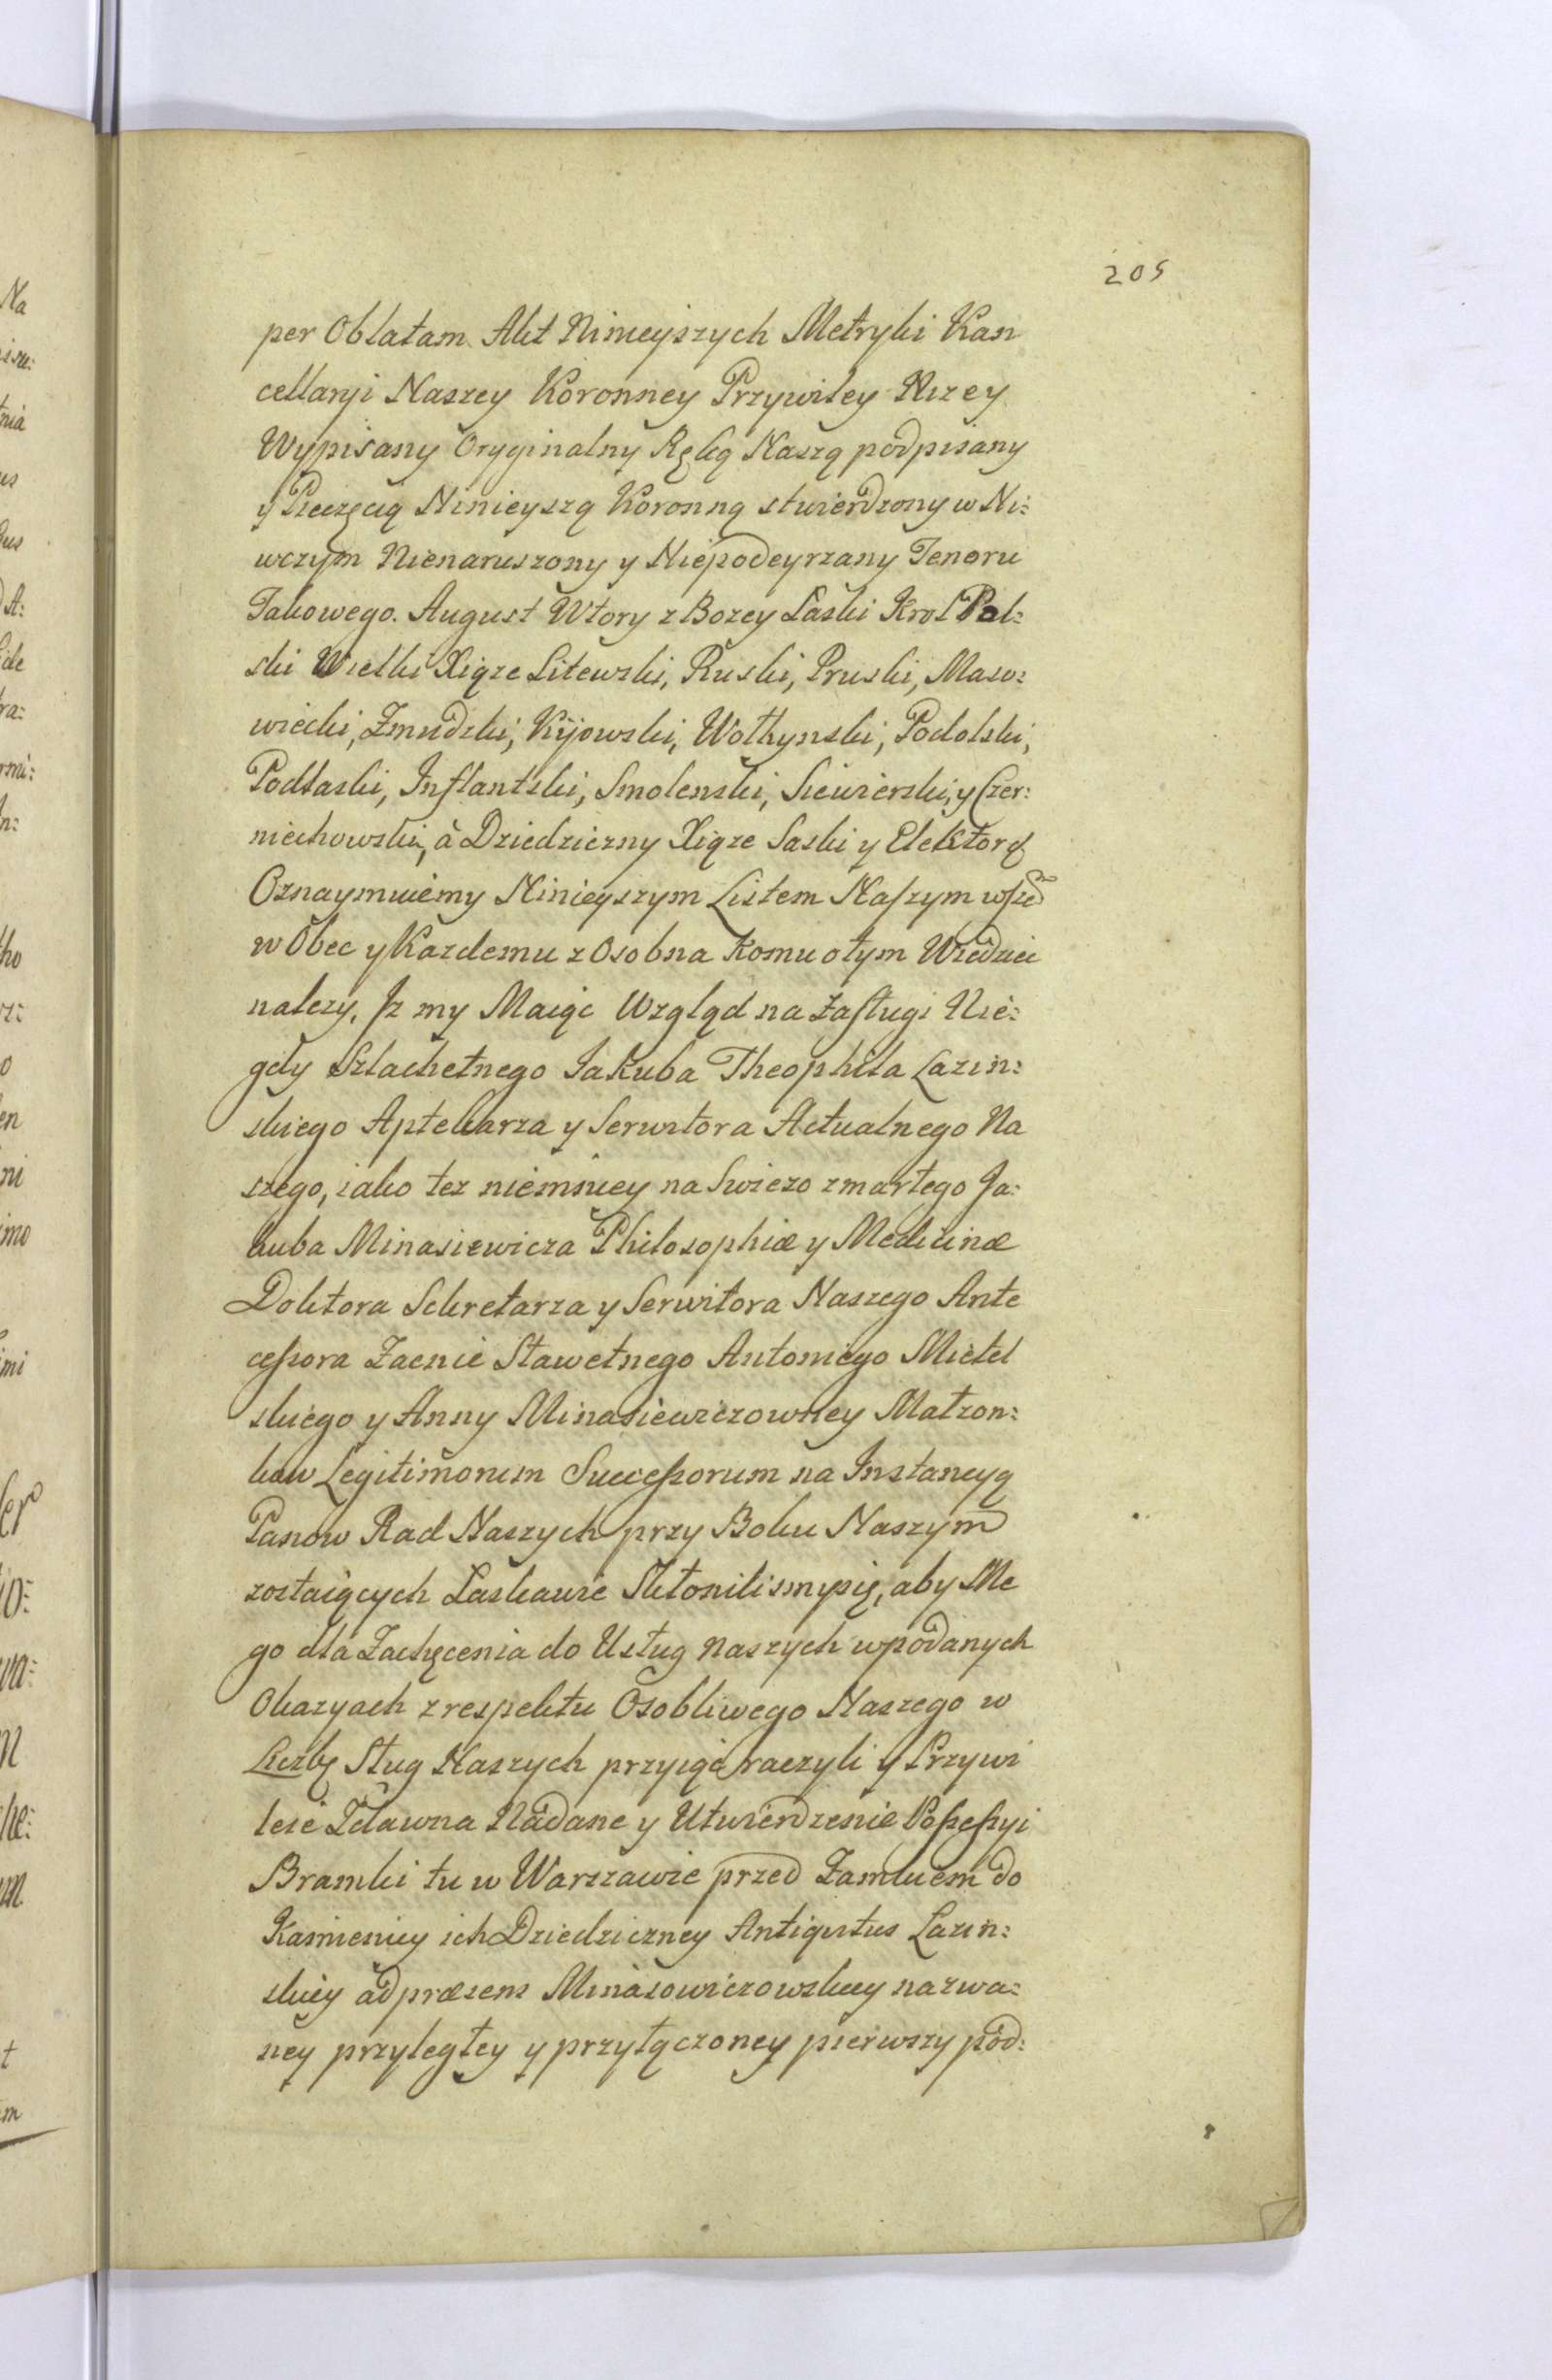 205
per Oblatam Akt Ninieyszych Metryki Kan
cellaryi Naszey Koronney Przywiley Nizey
Wypisany Oryginalny Ręką Naszą podpisany
y Pieczęcią Ninieyszą Koronną stwierdzony w Ni:
wczym Nienaruszony y Niepodeyrzany Tenoru
Takowego. August Wtory z Bozey Łaski Krol Pol:
ski Wielki Xiąze Litewski, Ruski, Pruski, Mazo:
wiecki, Zmudzki, Kijowski, Wołhynski, Podolski,
Podlaski, Inflantski, Smolenski, Siewierski, y Czer:
niechowski, à Dziedziczny Xiąze Saski y Elektor
Oznaymuiemy Ninieyszym Listem Naszym wszę
w Obec y Kazdemu z Osobna Komu o tym Wiedziec
nalezy, Iz my Maiąc Wzgląd na Zasługi Nie:
gdy Szlachetnego Jakuba Theophila Lazin:
skiego Aptekarza y Serwitora Actualnego Na
szego, iako tez niemniey na Swiezo zmarłego Ja:
kuba Minasiewicza Philosophiæ y Medicinæ
Doktora Sekretarza y Serwitora Naszego Ante
cessora Zacnie Sławetnego Antoniego Mietel
skiego y Anny Minasiewiczowney Małzon:
kow Legitimorum Successorum na Instancyą
Panow Rad Naszych przy Boku Naszym
zostaiących Łaskawie Skłonilismysię, aby Me
go dla Zachęcenia do Usług naszych wpodanych
Okazyach z respektu Osobliwego Naszego w
Liczbę Sług Naszych przyiąc raczyli y Przywi
leie Zdawna Nadane y Utwierdzenie Possessyi
Bramki tu w Warszawie przed Zamkiem do
Kamienicy ich Dziedziczney Antiquitus Lazin:
skiey ad præsens Minasowiczowskiey nazwa:
ney przyległey y przyłączoney pierwszy pod: